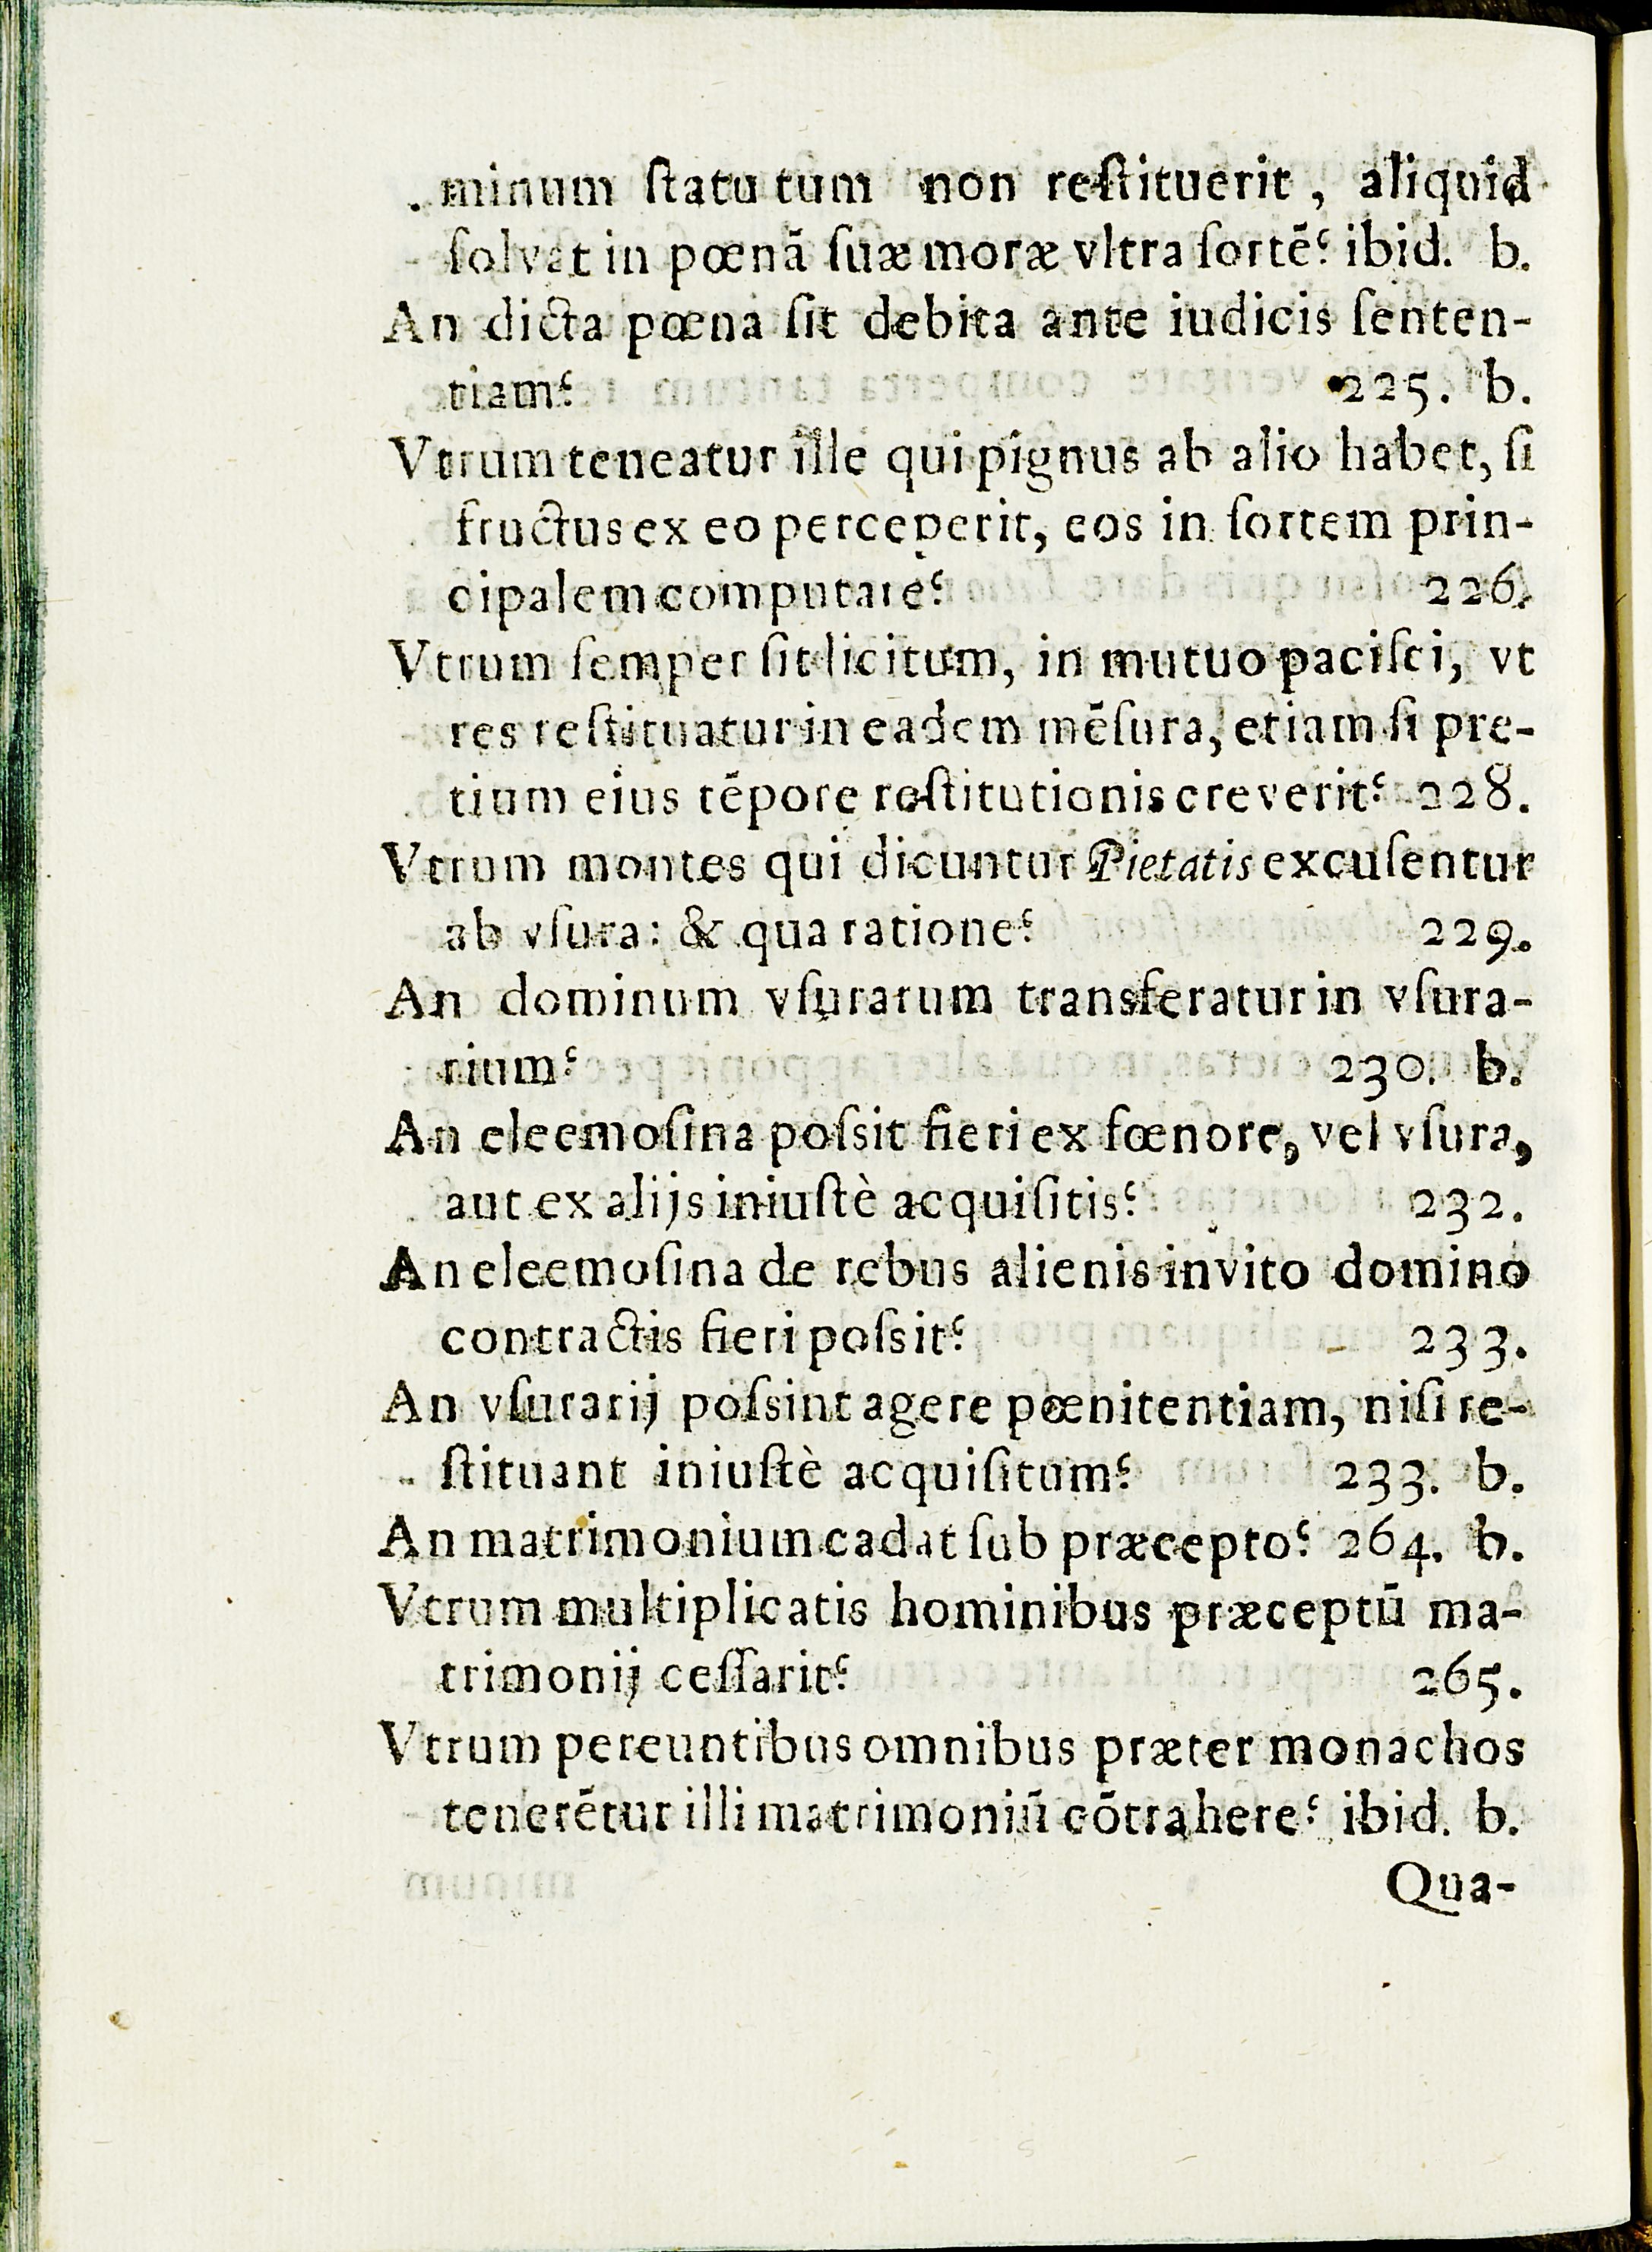 minum ſtatutum non reſtituerit, aliquid
ſolvat in pœnā ſuæ moræ vltra ſortē? ibid. b.
An dicta pœna ſit debita ante iudicis ſenten-
tiam? 225. b.
Vtrum teneatur ille qui pignus ab alio habet, ſi
fructus ex eo perceperit, eos in ſortem prin-
cipalem computare? 226.
Vtrum ſemper ſit licitum, in mutuo paciſci, vt
res reſtituatur in eadem mēſura, etiam ſi pre-
tium eius tēpore reſtitutionis creverit? 228.
Vtrum montes qui dicuntur Pietatis excuſentur
ab vſura: & qua ratione? 229.
An dominum vſurarum transferatur in vſura-
rium? 230. b.
An eleemoſina poſsit fieri ex fœnore, vel vſura,
aut ex alijs iniuſtè acquiſitis? 232.
An eleemoſina de rebus alienis invito domino
contractis fieri poſsit? 233.
An vſurarij poſsint agere pœnitentiam, niſi re-
ſtituant iniuſtè acquiſitum? 233. b.
An matrimonium cadat ſub præcepto? 264. b.
Vtrum multiplicatis hominibus præceptū ma-
trimonij ceſſarit? 265.
Vtrum pereuntibus omnibus præter monachos
tenerētur illi matrimoniū cōtrahere? ibid. b.
Qua-